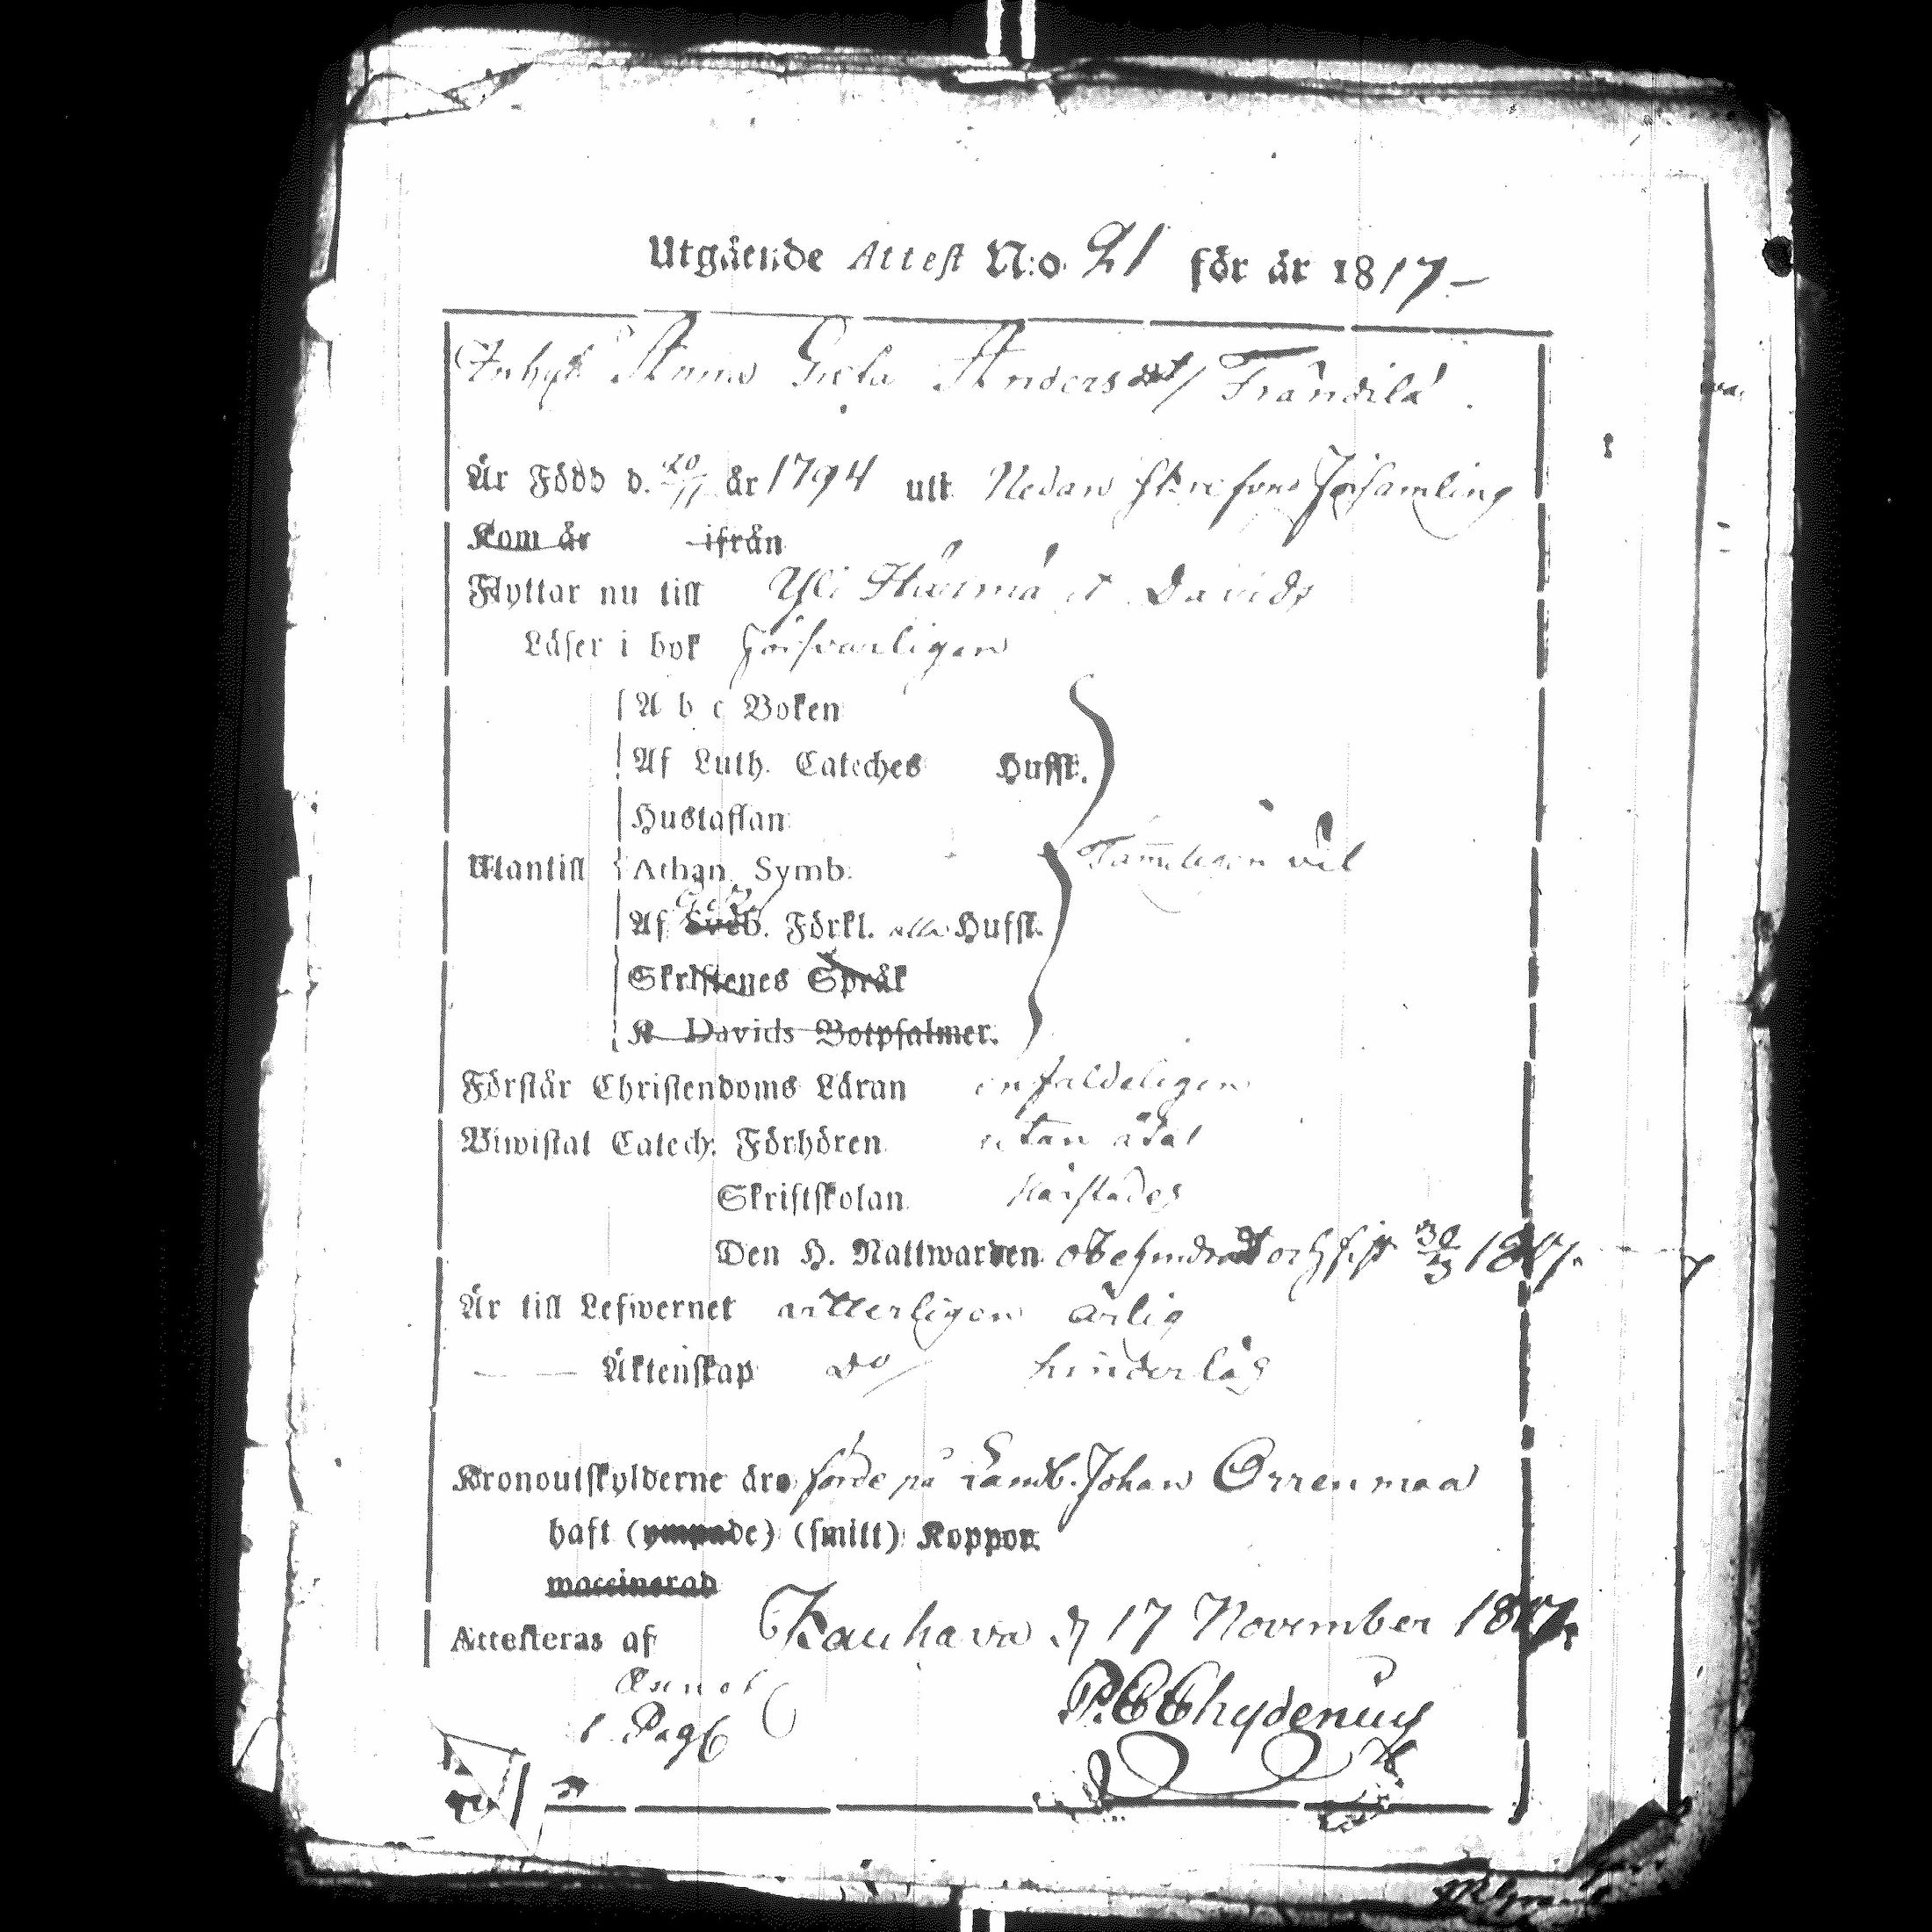 Utgående Attest N:o 21 för år 1817
Inhys Anna Greta Andersdot/ Frändilä.
Är Född d. 20/11 år 1794 uti Nedanskrefvne Församling
Kom år ifrån
Flyttar nu till Yli Härmä Davids
Läser i bok försvarligen
A b c Boken
Af Luth. Cateches Hufst.
Hustaflan
Utantill Athan. Symb. Tämmeligen väl
Af Sveb. Förkl. alla Hufst.
Skriftenes Språk
K. Davids Botpsalmer.
Förstår Christendoms Läran enfaldeligen
Biwistat Catech. Förhören utan åtal
Skriftskolan
Den H. Nattwarden obehindradt och sist 30/3 1817.
Är till Lefwernet witterligen ärlig
— — Äktenskap do/ hinderlös
Kronoutskylderne äro förde på Landb. Johan Orrenmaa
haft (ympade) (smitt) Koppor.
waccinerad
Attesteras af Kauhava d 17 November 1817.
P. C Chydenius
Pag